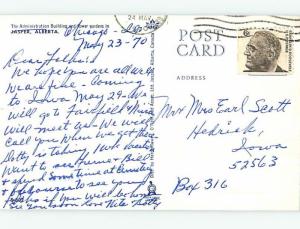 The Administration Building and flower gardens in
JASPER, ALBERTA.
Chicago -
May 23-70
Dear Folks:
We hope you are all well
we are fine. Coming
to Iowa May 29. We
will go to Fairfield
will meet us. We will
call you when we get there
Dotty is taking
Want to see
+ spend some time at Cemetery
+ of course to see you
if you will be home
See you soon love
24 MAY
POST
CARD
6¢
Mr + Mrs Earl Scott
Hedrick,
Iowa
52563
Box 316